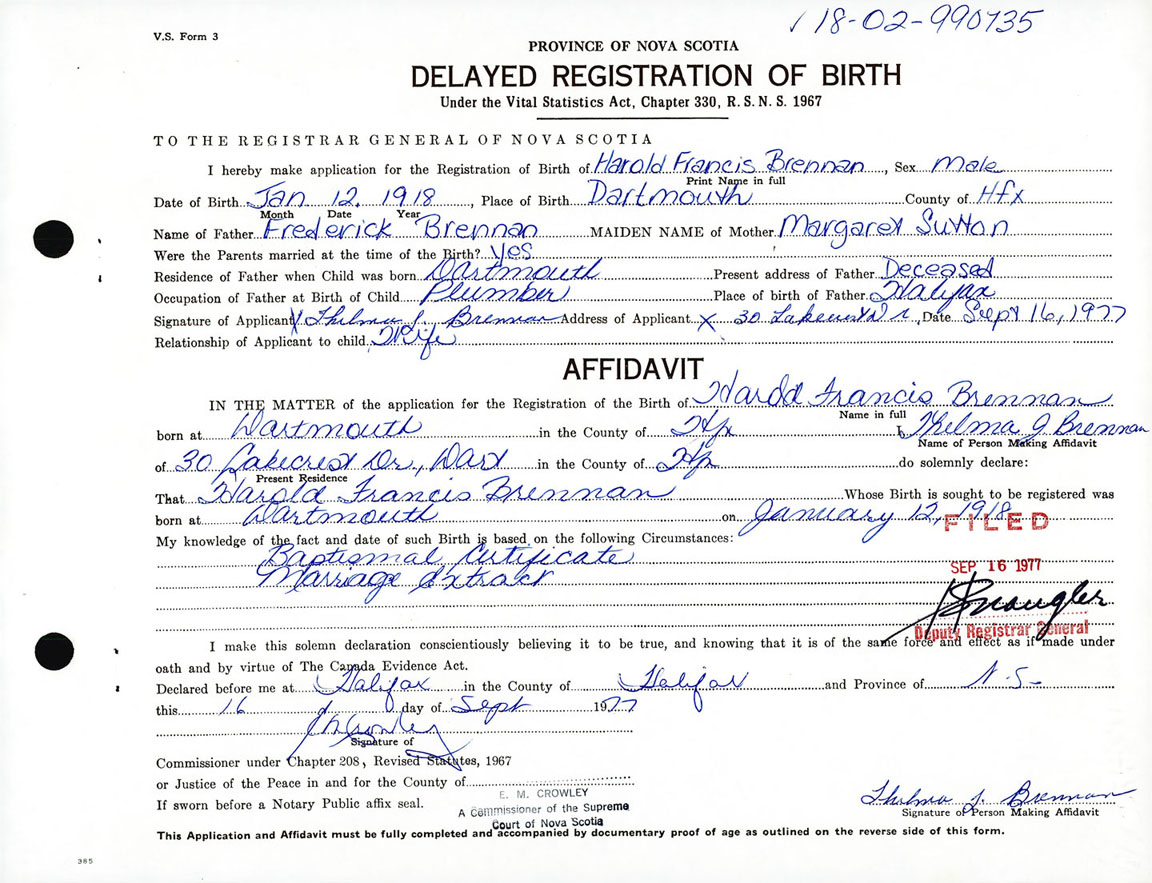 18-02-990735
V.S. Form 3
PROVINCE OF NOVA SCOTIA
DELAYED REGISTRATION OF BIRTH
Under the Vital Statistics Act, Chapter 330, R.S.N.S. 1967
TO THE REGISTRAR GENERAL OF NOVA SCOTIA
I hereby make application for the Registration of Birth of Harold Francis Brennan, Sex Male
Print Name in full
Date of Birth Jan 12, 1918, Place of Birth Dartmouth County of Hfx
Month Date Year
Name of Father Frederick Brennan MAIDEN NAME of Mother Margaret Sutton
Were the Parents married at the time of the Birth? Yes
Residence of Father when Child was born Dartmouth Present address of Father Deceased
Occupation of Father at Birth of Child Plumber Place of birth of Father Halifax
Signature of Applicant X Thelma J. Brennan Address of Applicant X 30 Date Sept 16, 1977
Relationship of Applicant to child Wife
AFFIDAVIT
IN THE MATTER of the application for the Registration of the Birth of Harold Francis Brennan
Name in full
born at Dartmouth in the County of Hfx I, Thelma J. Brennan
Name of Person Making Affidavit
of 30 Lakecrest Dr., Dart in the County of Hfx do solemnly declare:
Present Residence
That Harold Francis Brennan Whose Birth is sought to be registered was
born at Dartmouth on January 12, 1918
FILED
My knowledge of the fact and date of such Birth is based on the following Circumstances:
Baptismal Certificate
Marriage Extract
SEP 16 1977
Deputy Registrar General
I make this solemn declaration conscientiously believing it to be true, and knowing that it is of the same force and effect as if made under
oath and by virtue of The Canada Evidence Act.
Declared before me at Halifax in the County of Halifax and Province of N.S.
this 16 day of Sept 1977
E M Crowley
Signature of
Commissioner under Chapter 208, Revised Statutes, 1967
or Justice of the Peace in and for the County of
E. M. CROWLEY
If sworn before a Notary Public affix seal.
A Commissioner of the Supreme
Court of Nova Scotia
Thelma J. Brennan
Signature of Person Making Affidavit
This Application and Affidavit must be fully completed and accompanied by documentary proof of age as outlined on the reverse side of this form.
385